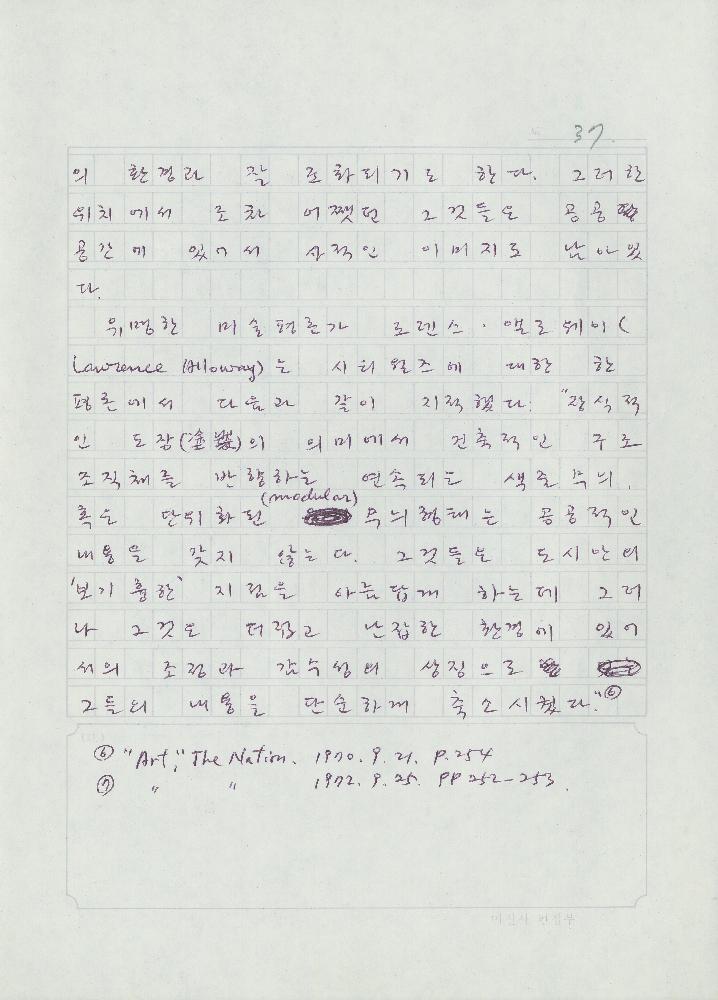 37.
의 환경과 잘 조화되기도 한다. 그러한
위치에서 조차 어쨌던 그것들은 공공
공간에 있어서 사적인 이미지로 남아있
다.
유명한 미술평론가 로렌스·앨로웨이(
Lawrence Alloway)는 시티월즈에 대한 한
평론에서 다음과 같이 지적했다. "장식적
인 도장(塗裝)의 의미에서 건축적인 구조
조직체를 반향하는 연속되는 색줄무늬,
(modular)
혹은 단위화된 무늬형태는 공공적인
내용을 갖지 않는다. 그것들은 도시안의
'보기 흉한' 지점을 아름답게 하는데 그러
나 그것은 더럽고 난잡한 환경에 있어
서의 조정과 감수성의 상징으로
그들의 내용을 단순하게 축소시켰다."⑥
⑥ "Art," The Nation. 1970. 9. 21. P.254
⑦ 〃 〃 1972. 9. 25. PP 252-253.
편집부